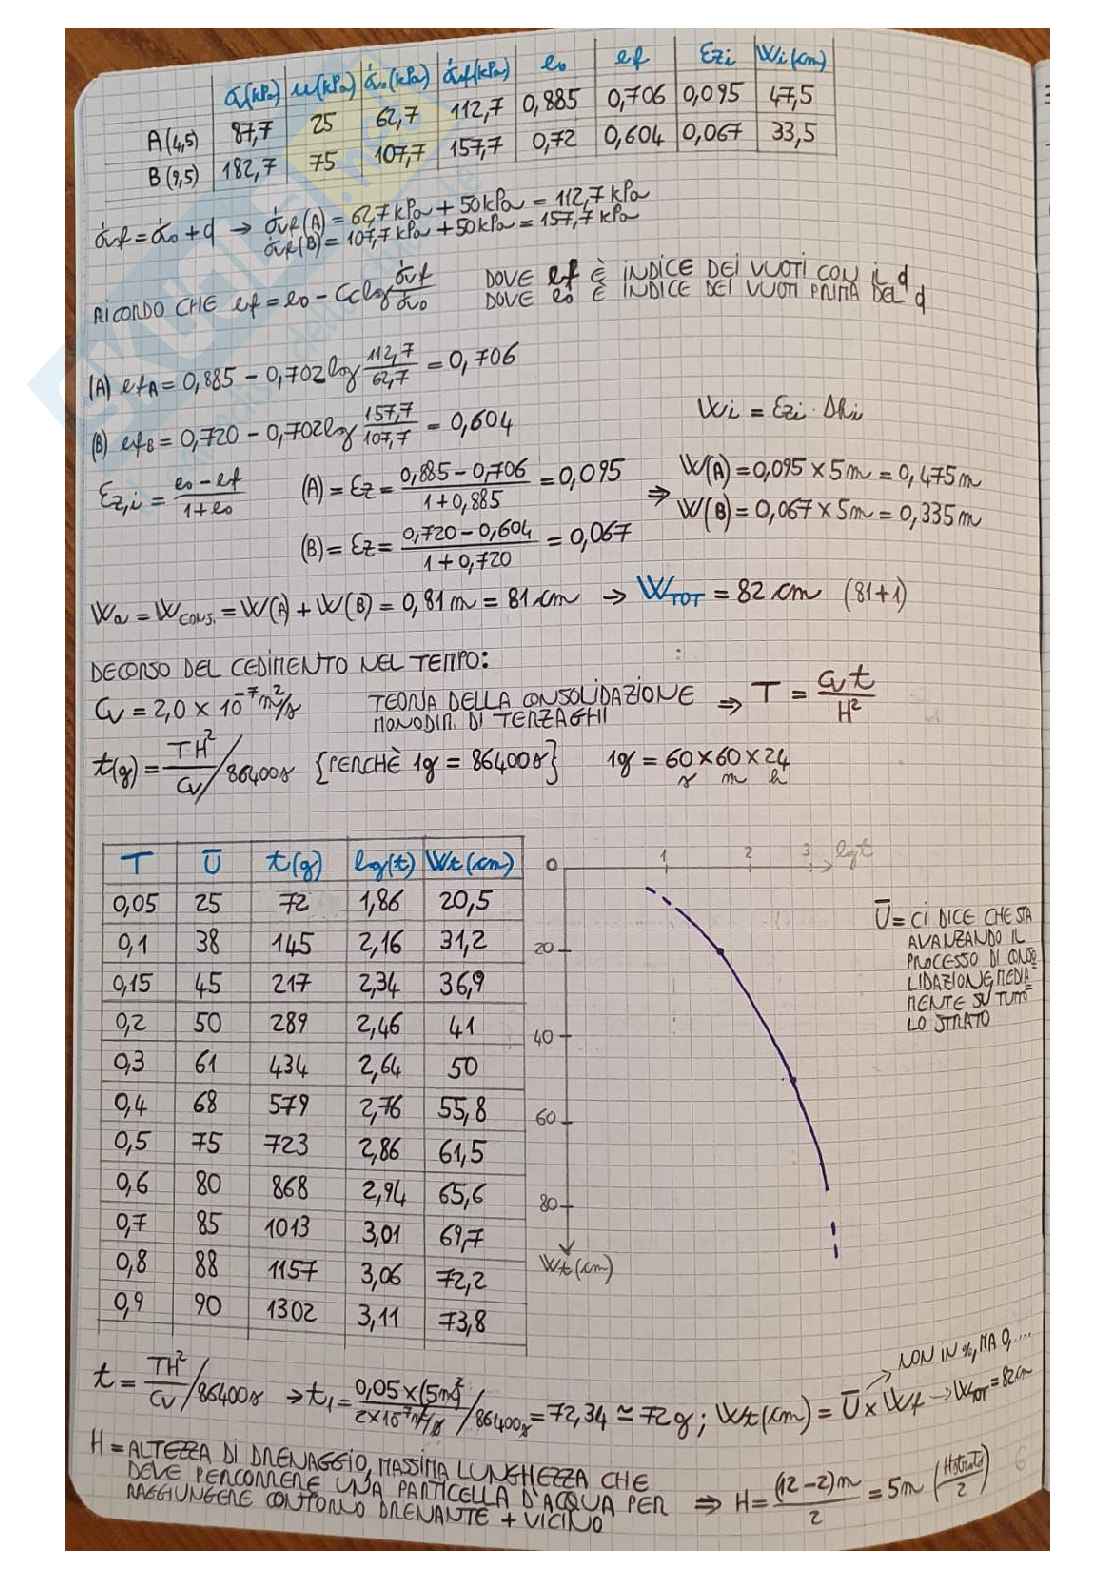 σv(kPa) u(kPa) σ'vo(kPa) σ'vf(kPa) eo ef εzi Wi(cm)
A(4,5) 87,7 25 62,7 112,7 0,885 0,706 0,095 47,5
B(9,5) 182,7 75 107,7 157,7 0,72 0,604 0,067 33,5
σ'vf = σ'vo + q → σ'vf(A) = 62,7 kPa + 50 kPa = 112,7 kPa
σ'vf(B) = 107,7 kPa + 50 kPa = 157,7 kPa
RICORDO CHE ef = eo - Cc log σ'vf/σ'vo DOVE ef È INDICE DEI VUOTI CON IL q
DOVE eo È INDICE DEI VUOTI PRIMA DEL q
(A) efA = 0,885 - 0,702 log 112,7/62,7 = 0,706
(B) efB = 0,720 - 0,702 log 157,7/107,7 = 0,604
Wi = εzi · Δhi
εz,i = eo - ef / 1 + eo (A) = εz = 0,885 - 0,706 / 1 + 0,885 = 0,095
(B) = εz = 0,720 - 0,604 / 1 + 0,720 = 0,067
⇒ W(A) = 0,095 × 5m = 0,475m
W(B) = 0,067 × 5m = 0,335m
Wa = Wcons. = W(A) + W(B) = 0,81 m = 81 cm → WTOT = 82 cm (81+1)
DECORSO DEL CEDIMENTO NEL TEMPO:
Cv = 2,0 × 10⁻⁷ m²/s TEORIA DELLA CONSOLIDAZIONE MONODIM. DI TERZAGHI ⇒ T = Cv t / H²
t(g) = TH²/Cv / 86400s {PERCHÈ 1g = 86400s} 1g = 60 × 60 × 24
s m h
T Ū t(g) log(t) Wt(cm)
0,05 25 72 1,86 20,5
0,1 38 145 2,16 31,2
0,15 45 217 2,34 36,9
0,2 50 289 2,46 41
0,3 61 434 2,64 50
0,4 68 579 2,76 55,8
0,5 75 723 2,86 61,5
0,6 80 868 2,94 65,6
0,7 85 1013 3,01 69,7
0,8 88 1157 3,06 72,2
0,9 90 1302 3,11 73,8
0 1 2 3 log t
20
40
60
80
Wt(cm)
Ū = CI DICE CHE STA
AVANZANDO IL
PROCESSO DI CONSO
LIDAZIONE MEDIA
MENTE SU TUTTO
LO STRATO
NON IN %, MA 0,....
t = TH²/Cv / 86400s → t1 = 0,05 × (5m)² / 2×10⁻⁷ m²/s / 86400s = 72,34 ≃ 72 g ; Wt(cm) = Ū × Wf → WTOT = 82cm
H = ALTEZZA DI DRENAGGIO, MASSIMA LUNGHEZZA CHE
DEVE PERCORRERE UNA PARTICELLA D'ACQUA PER
RAGGIUNGERE CONTORNO DRENANTE + VICINO
⇒ H = (12-2)m / 2 = 5m (Hstrato/2)